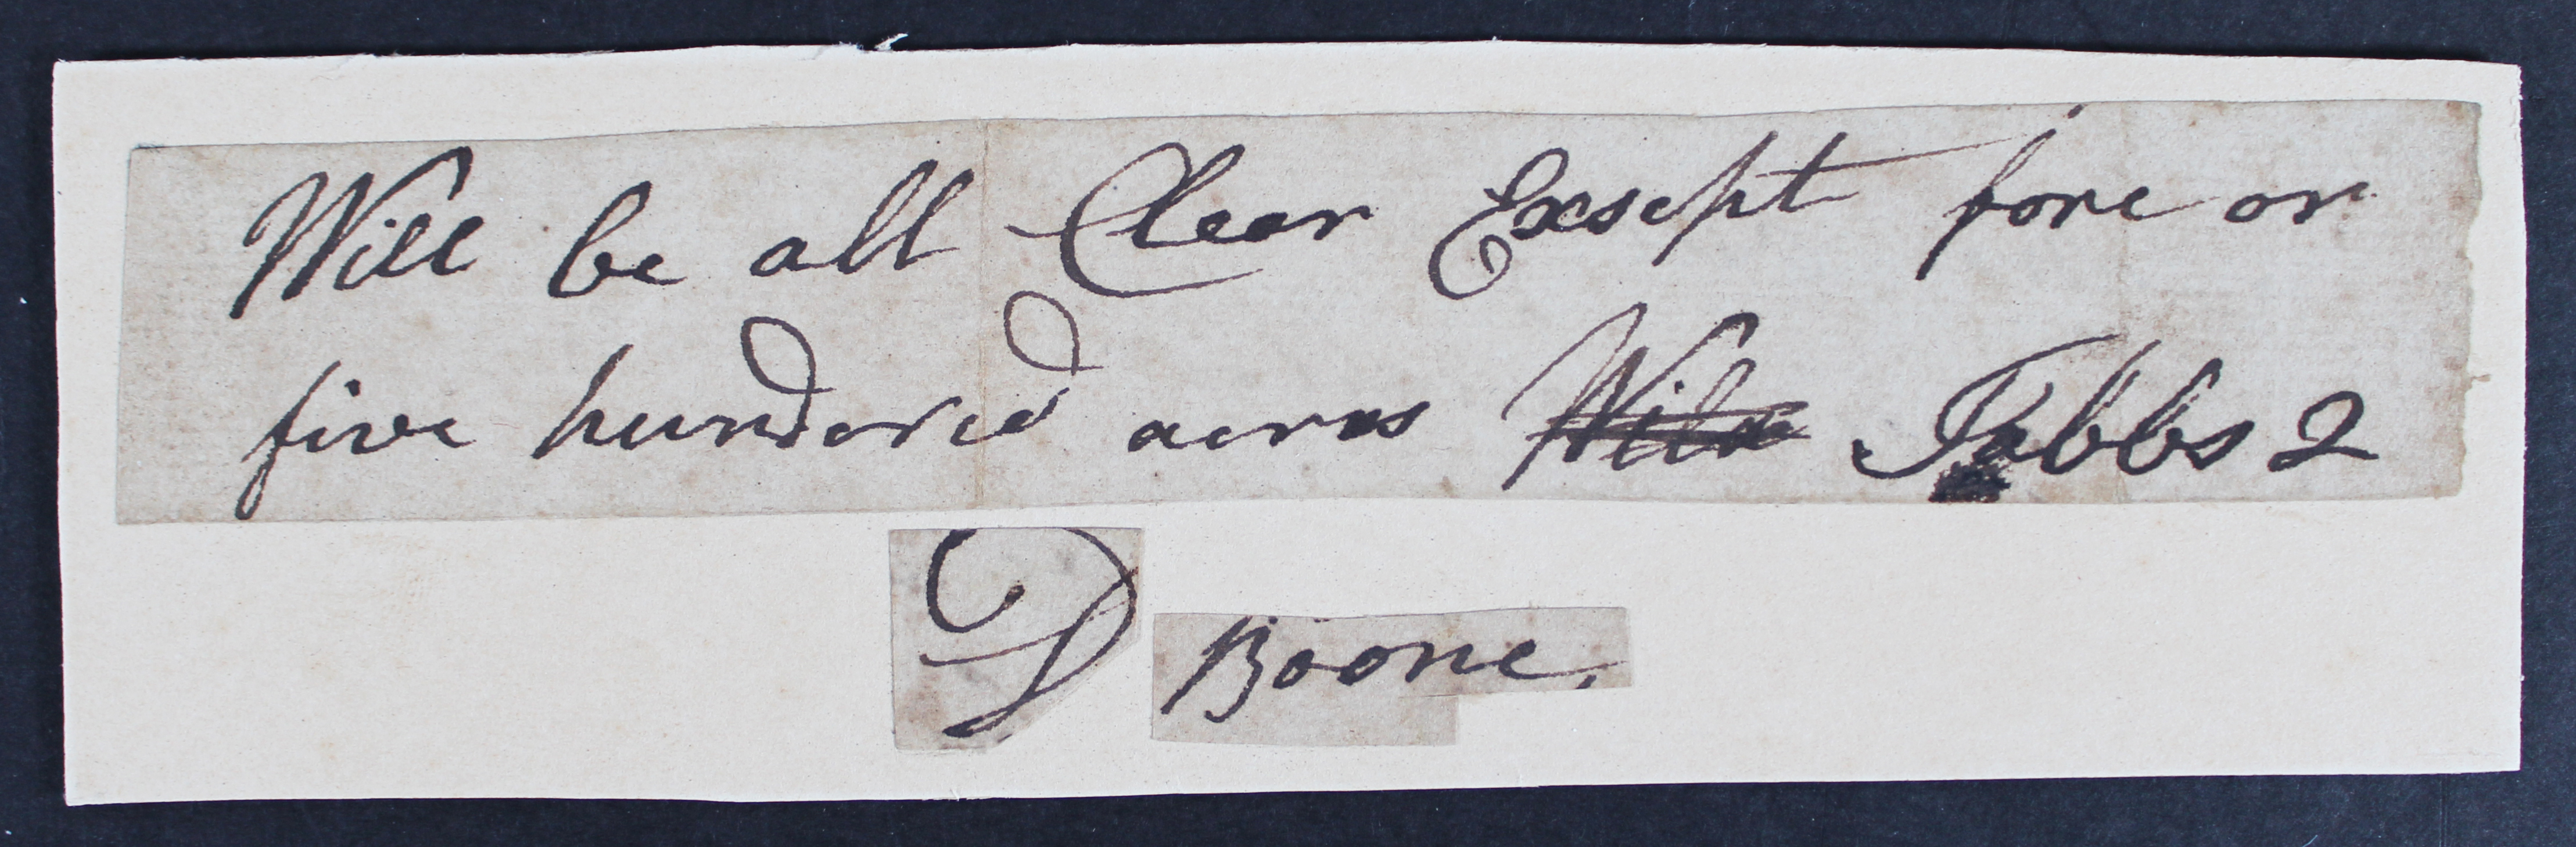 Will be all Clear Exsept fore or
five hundered acres Tabbs 2
D Boone,